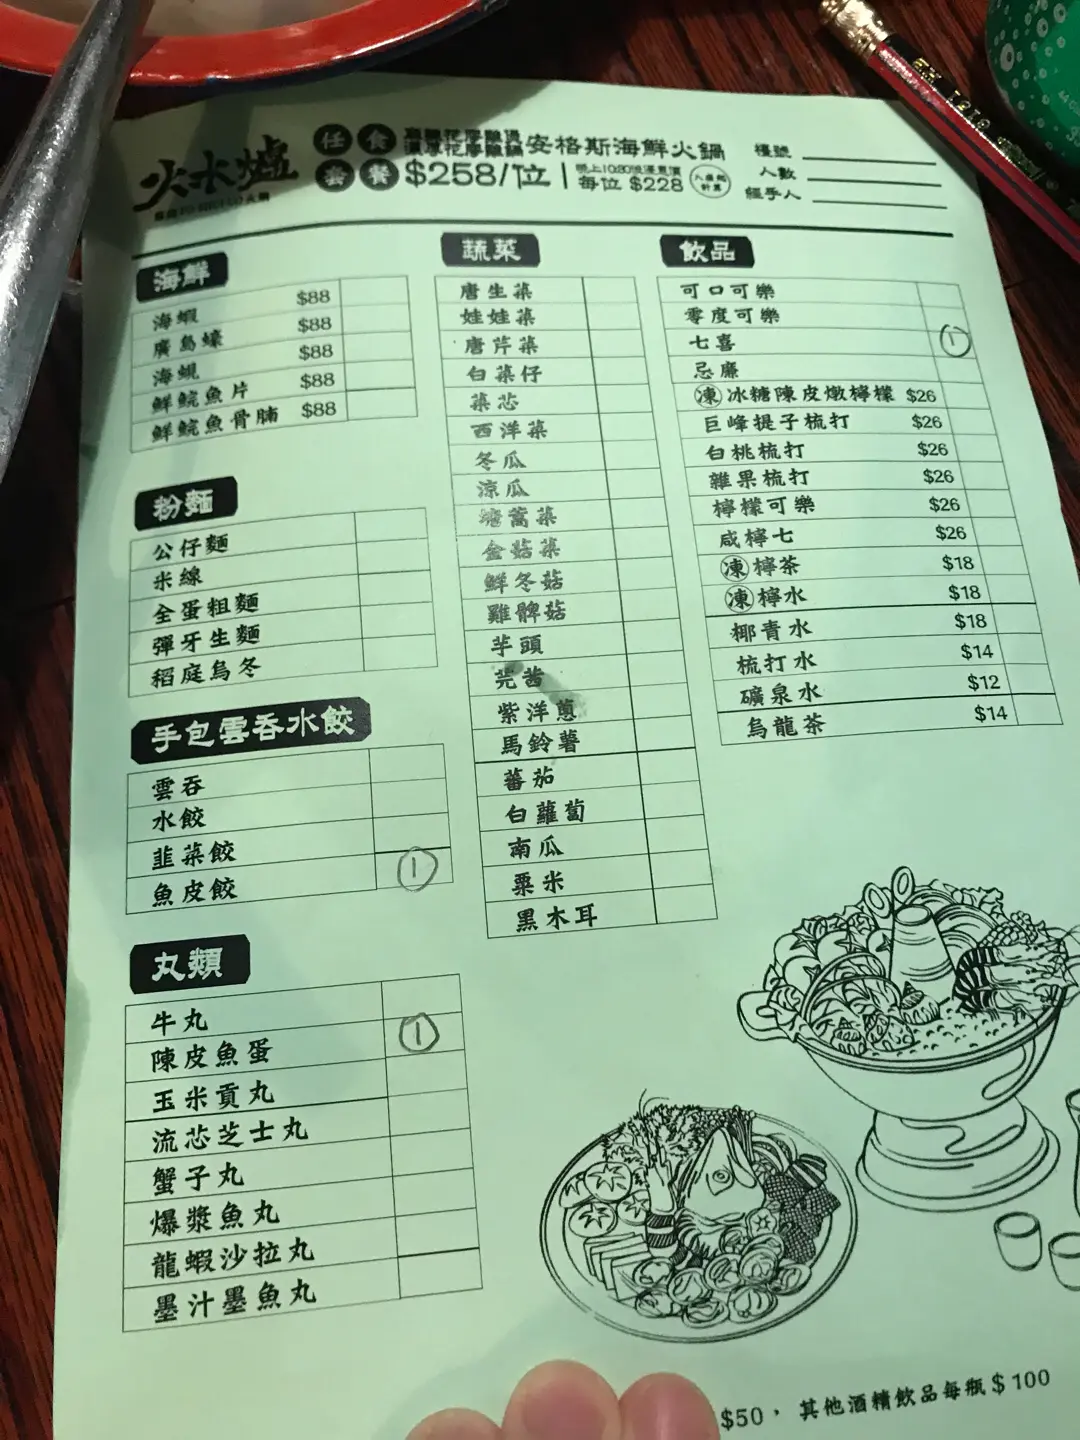 火水爐
任食
套餐
安格斯海鮮火鍋
$258/位
每位 $228
檯號
人數
經手人
海鮮
海蝦 $88
廣島蠔 $88
海蜆 $88
鮮鯇魚片 $88
鮮鯇魚骨腩 $88
粉麵
公仔麵
米線
全蛋粗麵
彈牙生麵
稻庭烏冬
手包雲吞水餃
雲吞
水餃
韭菜餃
魚皮餃 1
丸類
牛丸
陳皮魚蛋 1
玉米貢丸
流芯芝士丸
蟹子丸
爆漿魚丸
龍蝦沙拉丸
墨汁墨魚丸
蔬菜
唐生菜
娃娃菜
唐芹菜
白菜仔
菜芯
西洋菜
冬瓜
涼瓜
塘蒿菜
金菇菜
鮮冬菇
雞髀菇
芋頭
芫茜
紫洋蔥
馬鈴薯
蕃茄
白蘿蔔
南瓜
粟米
黑木耳
飲品
可口可樂
零度可樂
七喜 1
忌廉
凍冰糖陳皮燉檸檬 $26
巨峰提子梳打 $26
白桃梳打 $26
雜果梳打 $26
檸檬可樂 $26
咸檸七 $26
凍檸茶 $18
凍檸水 $18
椰青水 $18
梳打水 $14
礦泉水 $12
烏龍茶 $14
$50，其他酒精飲品每瓶$100